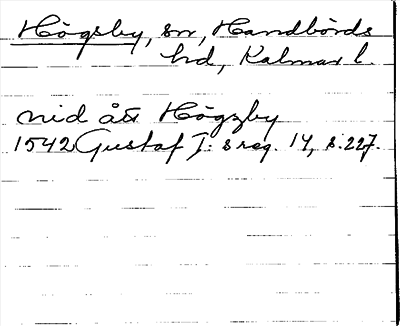 Högsby, sn, Handbörds
hd, Kalmar l.
nid åt Högzby
1542 Gustaf I:s reg. 14, s. 227.